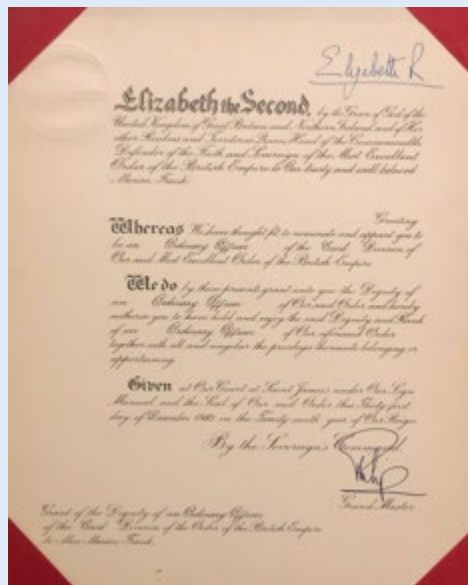 Elizabeth R
Elizabeth the Second, by the Grace of God of the
United Kingdom of Great Britain and Northern Ireland and of Her
other Realms and Territories Queen, Head of the Commonwealth,
Defender of the Faith and Sovereign of the Most Excellent
Order of the British Empire to Our trusty and well beloved
Frank
Greeting
Whereas We have thought fit to nominate and appoint you to
be an Ordinary Officer of the Civil Division of
Our said Most Excellent Order of the British Empire
We do by these presents grant unto you the Dignity of
an Ordinary Officer of Our said Order and hereby
authorise you to have hold and enjoy the said Dignity and Rank
of an Ordinary Officer of Our aforesaid Order
together with all and singular the privileges thereunto belonging or
appertaining.
Given at Our Court at Saint James's under Our Sign
Manual and the Seal of Our said Order this Thirty first
day of December in the Twenty ninth year of Our Reign
By the Sovereign's Command.
Philip
Grand Master.
Grant of the Dignity of an Ordinary Officer
of the Civil Division of the Order of the British Empire
to Frank